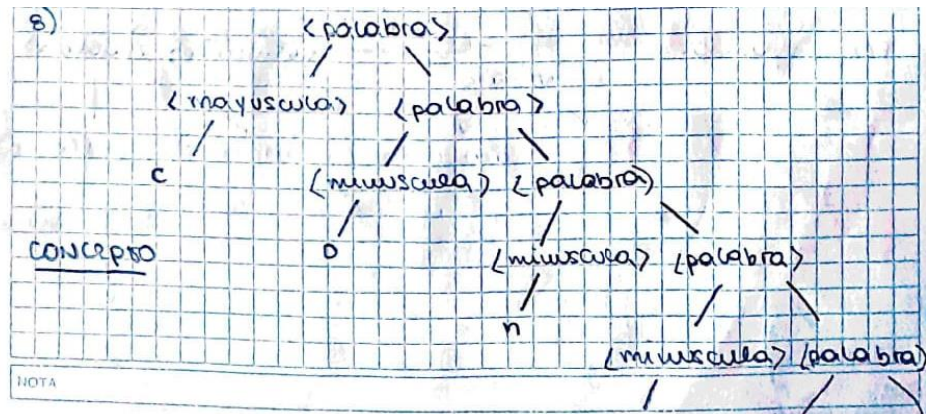 8)
<palabra>
<mayuscula> <palabra>
c
<minuscula> <palabra>
concepto
o
<minuscula> <palabra>
n
<minuscula> <palabra>
NOTA